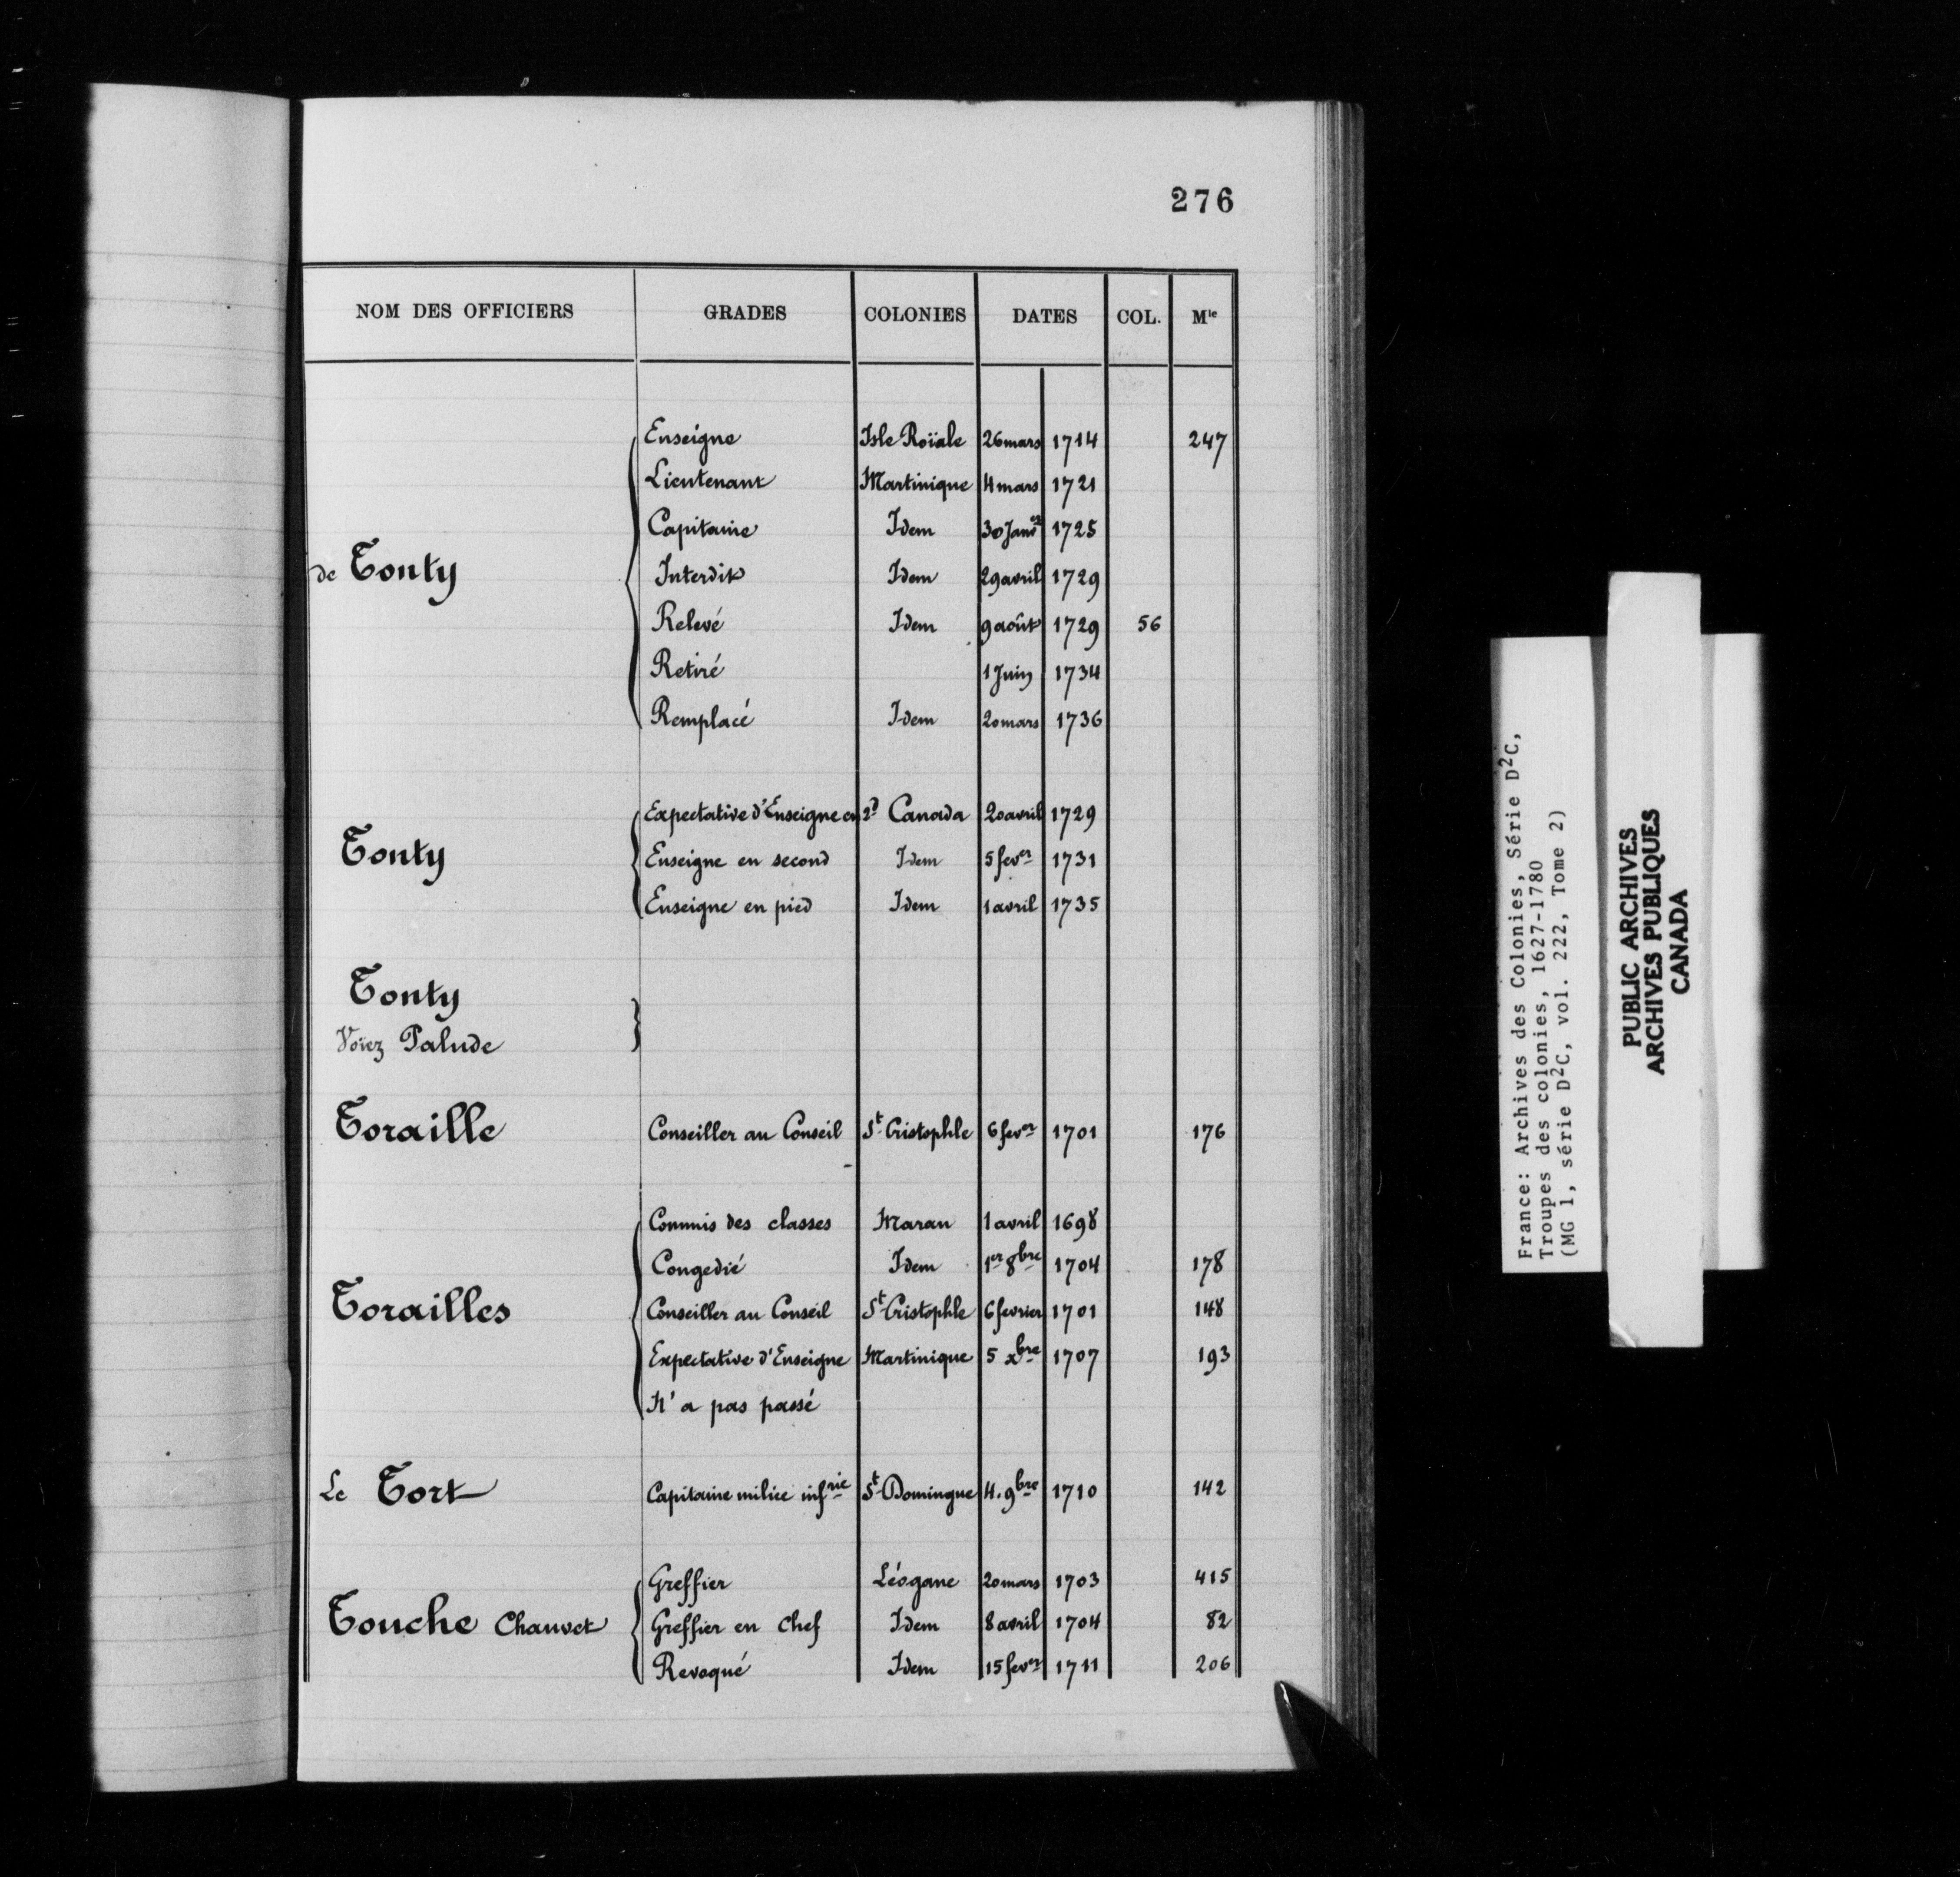 276
NOM DES OFFICIERS GRADES COLONIES DATES COL. Mle
Enseigne Isle Roïale 26 mars 1714 247
Lieutenant Martinique 4 mars 1721
Capitaine Idem 30 Janer 1725
de Tonty Interdit Idem 29 avril 1729
Relevé Idem 9 août 1729 56
Retiré 1 Juin 1734
Remplacé Idem 20 mars 1736
Expectative d'Enseigne en 2d Canada 20 avril 1729
Tonty Enseigne en second Idem 5 fever 1731
Enseigne en pied Idem 1 avril 1735
Tonty
Voïez Palude
Toraille Conseiller au Conseil St Cristophle 6 fever 1701 176
Commis des classes Maran 1 avril 1698
Congedié Idem 1er 8bre 1704 178
Torailles Conseiller au Conseil St Cristophle 6 fevrier 1701 148
Expectative d'Enseigne Martinique 5 xbre 1707 193
N'a pas passé
Le Tort Capitaine milice infrie St Domingue 4. 9bre 1710 142
Greffier Léogane 20 mars 1703 415
Touche Chauvet Greffier en Chef Idem 8 avril 1704 82
Revoqué Idem 15 fever 1711 206
France: Archives des Colonies, Série D2C,
Troupes des colonies, 1627-1780
(MG 1, série D2C, vol. 222, Tome 2)
PUBLIC ARCHIVES
ARCHIVES PUBLIQUES
CANADA